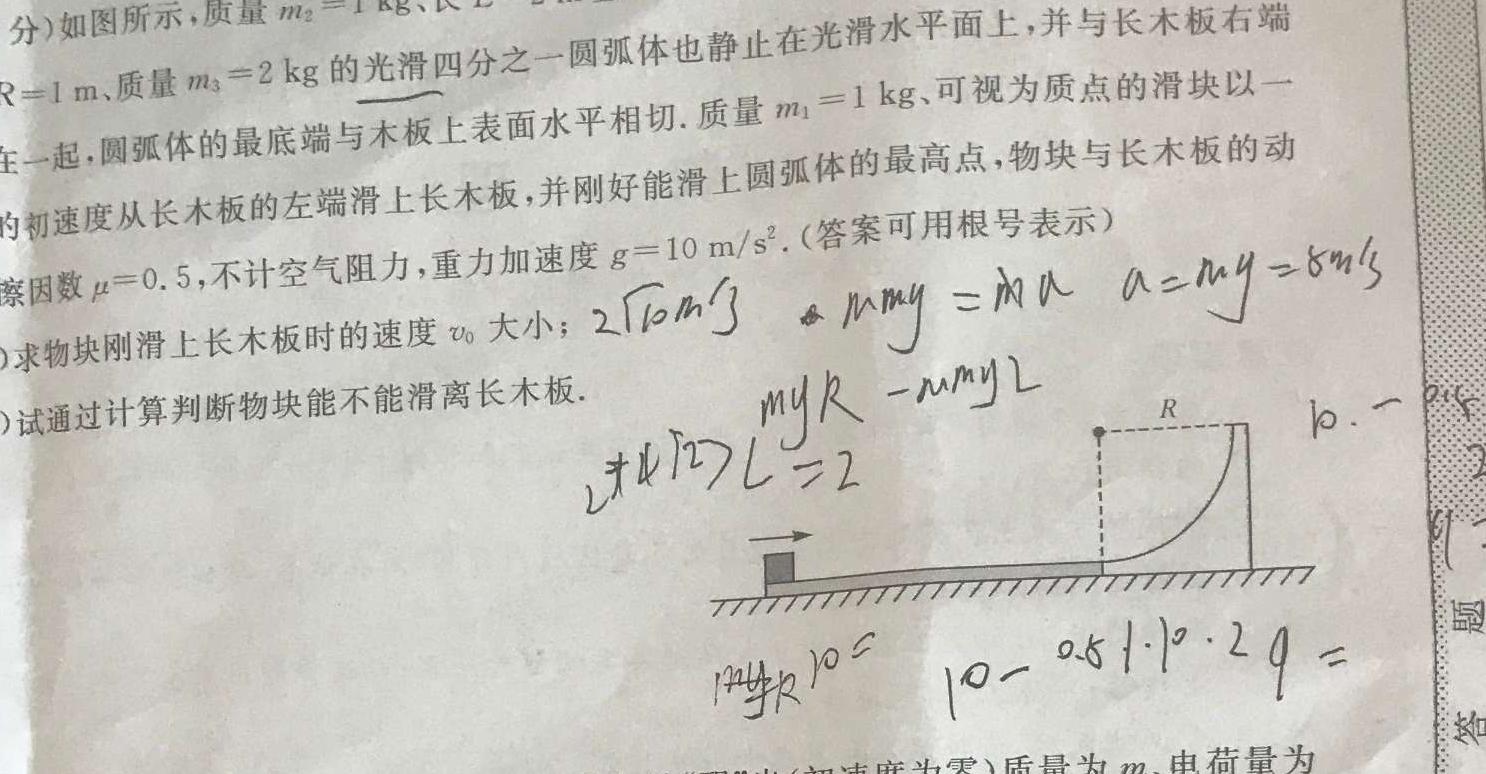 分)如图所示,质量 m₂=1 kg、长 L
R=1 m、质量 m₃=2 kg 的光滑四分之一圆弧体也静止在光滑水平面上,并与长木板右端
在一起,圆弧体的最底端与木板上表面水平相切. 质量 m₁=1 kg、可视为质点的滑块以一
的初速度从长木板的左端滑上长木板,并刚好能滑上圆弧体的最高点,物块与长木板的动
擦因数 μ=0.5,不计空气阻力,重力加速度 g=10 m/s².(答案可用根号表示)
)求物块刚滑上长木板时的速度 v₀ 大小; 2√10m/s μmg=ma a=mg=5m/s
)试通过计算判断物块能不能滑离长木板.
mgR -μmgL
>L=2
R
10=
10-0.5 1·10·2 9=
初速度为零)质量为 m、电荷量为
题
答